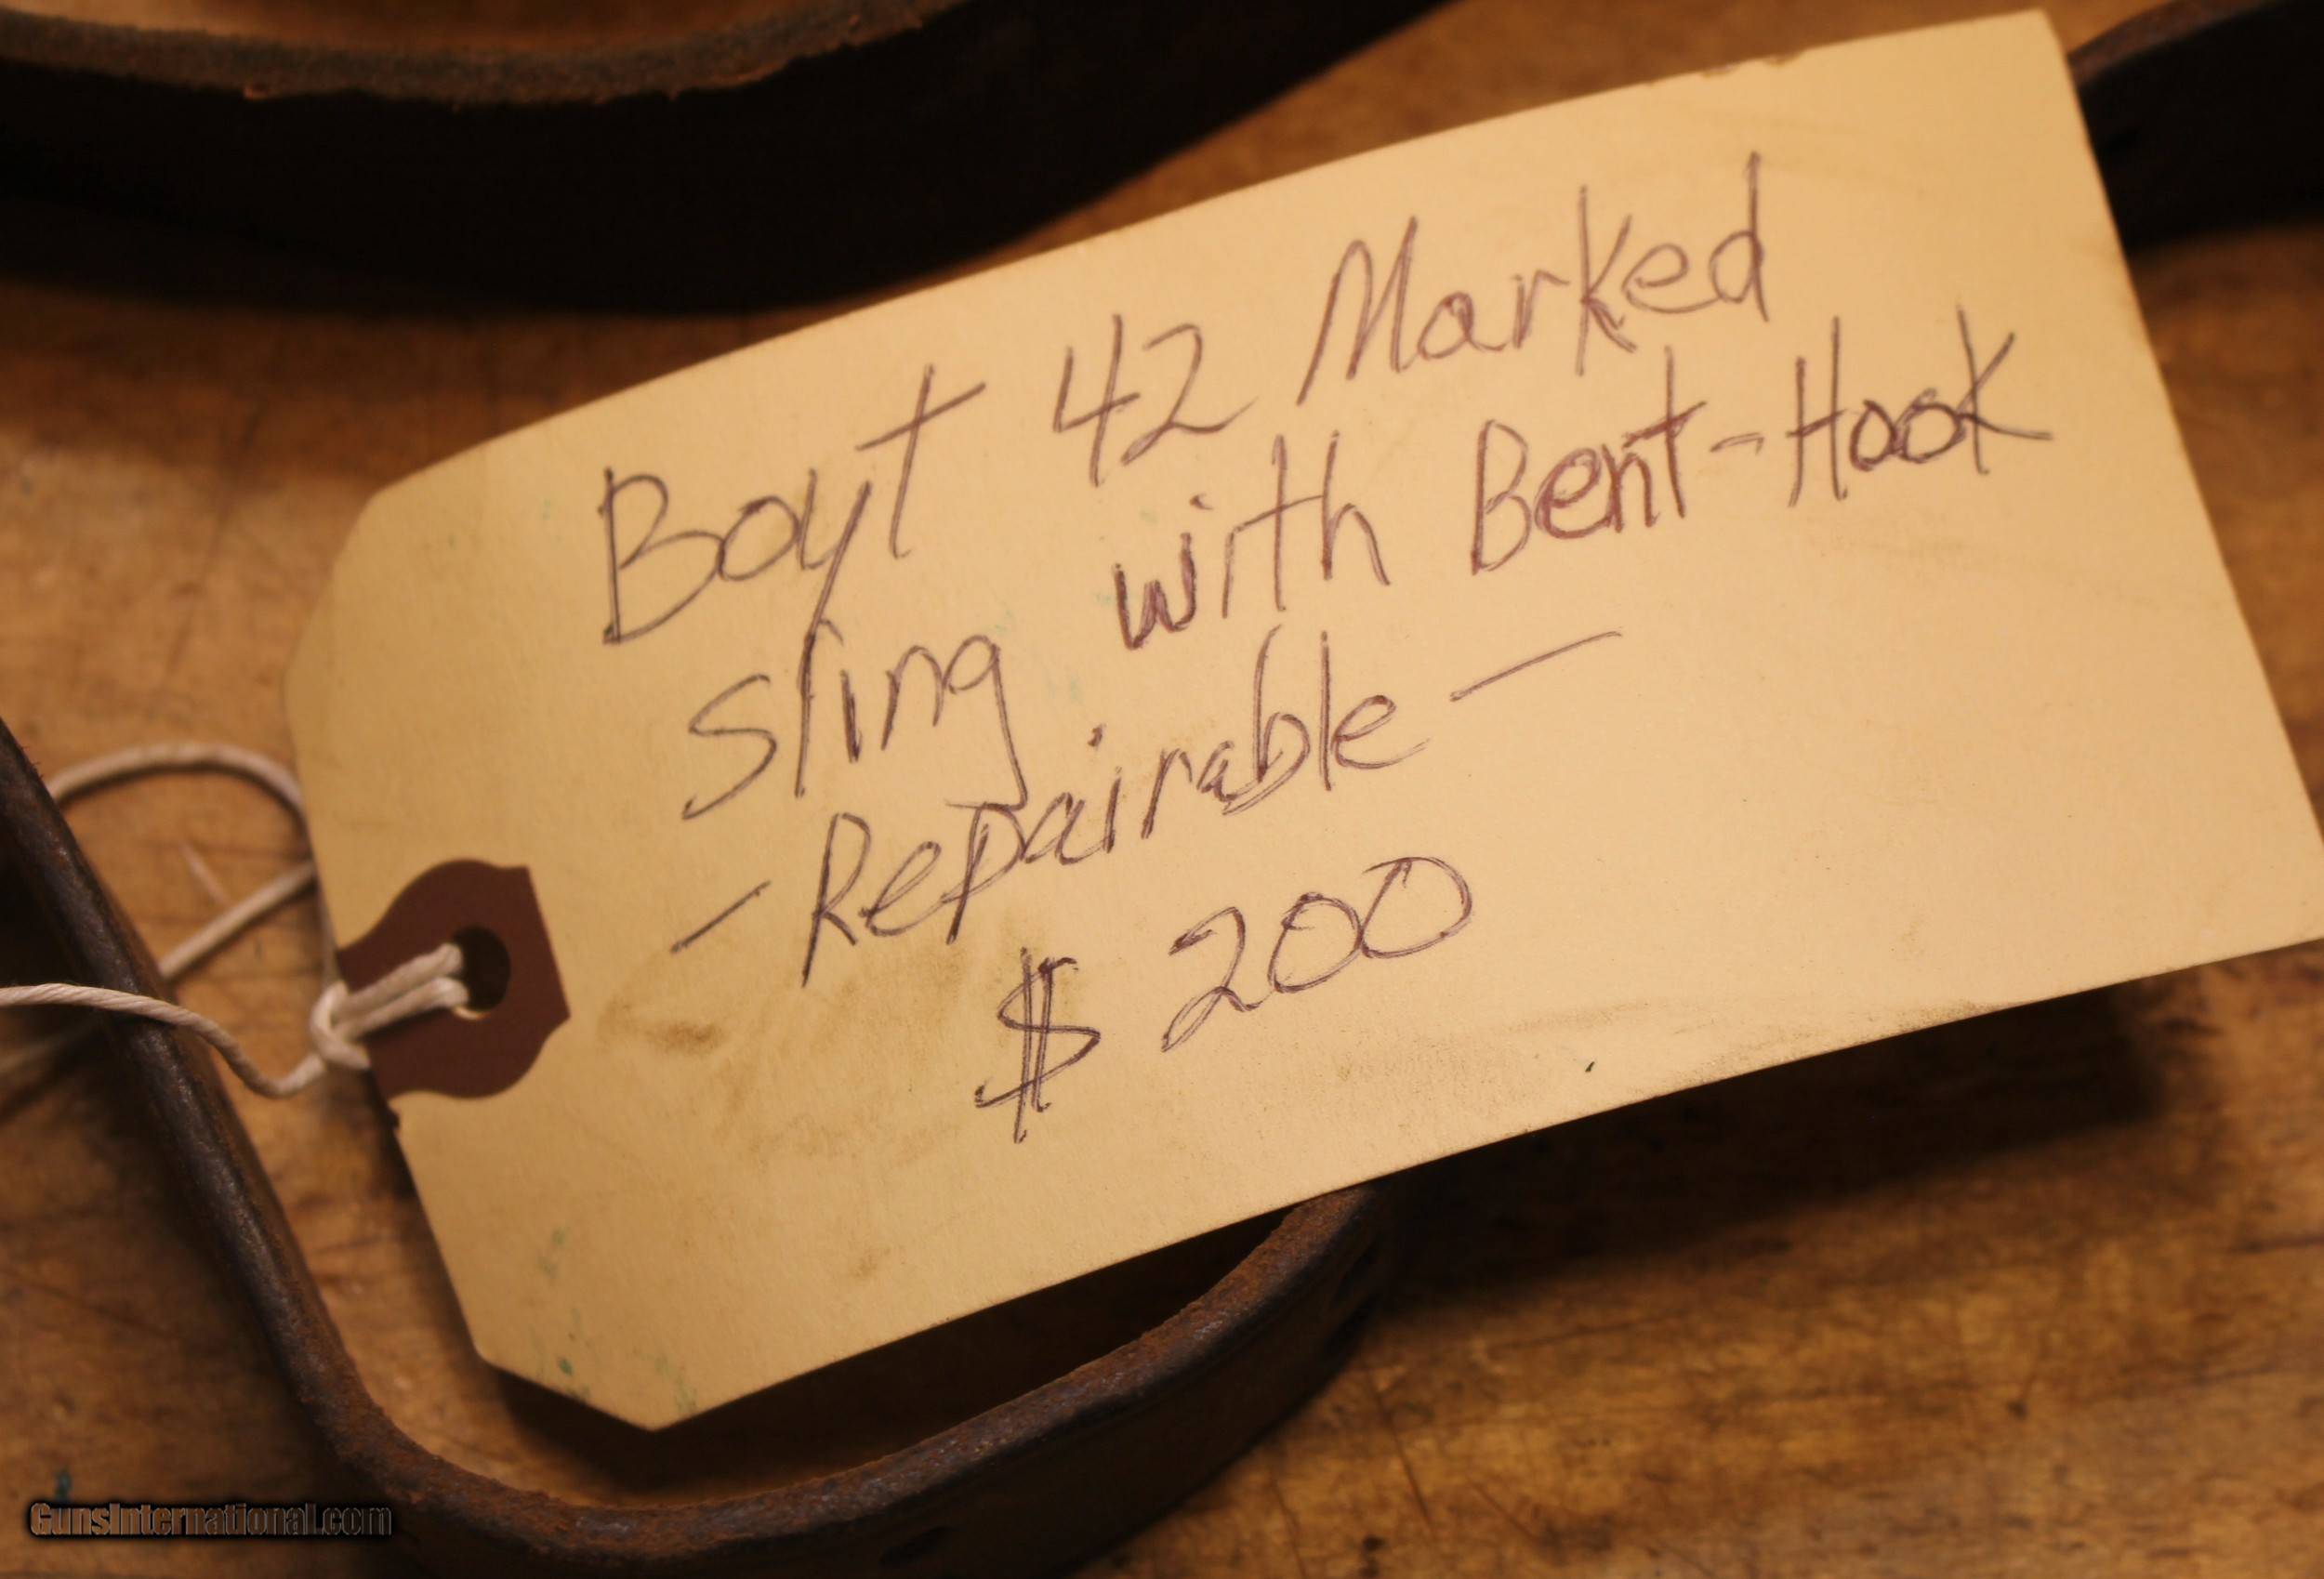 Boyt 42 Marked
sling with Bent-Hook
- Repairable -
$ 200
GunsInternational.com